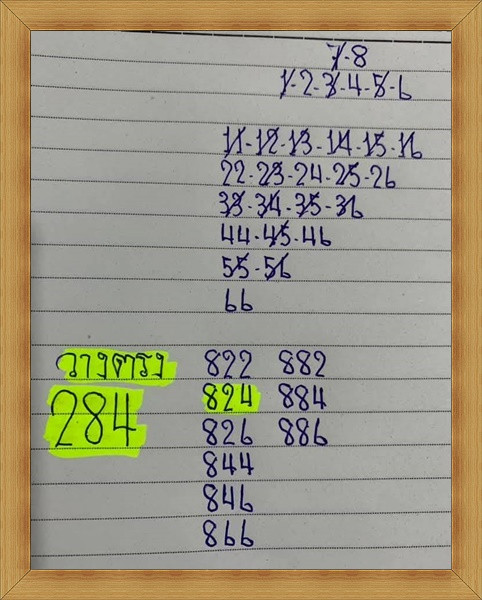 7-8
1-2-3-4-5-6
11-12-13-14-15-16
22-23-24-25-26
33-34-35-36
44-45-46
55-56
66
วางตรง 822 882
284 824 884
826 886
844
846
866